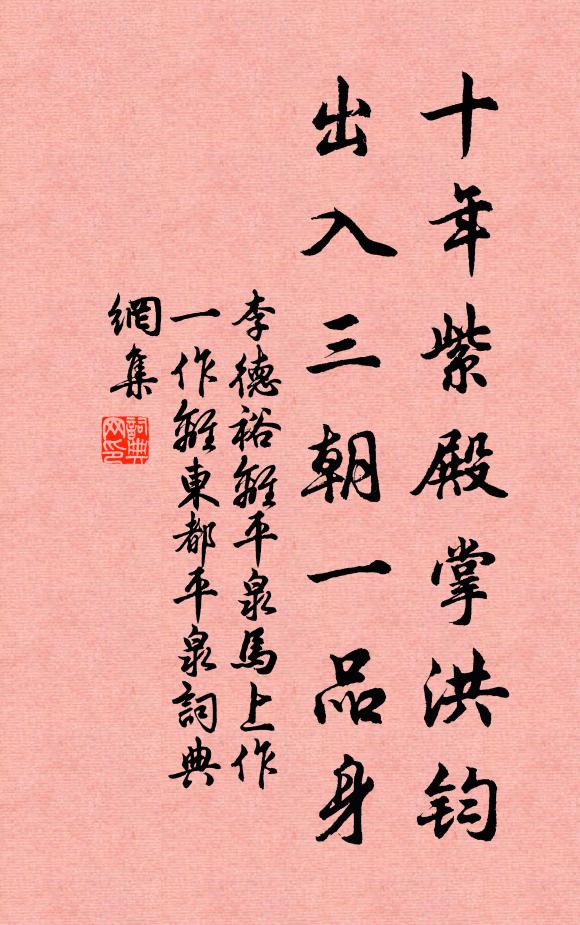 十年紫殿掌洪钧
出入三朝一品身
李德裕離平泉馬上作
一作離東都平泉詞典
網集
詞典
网印